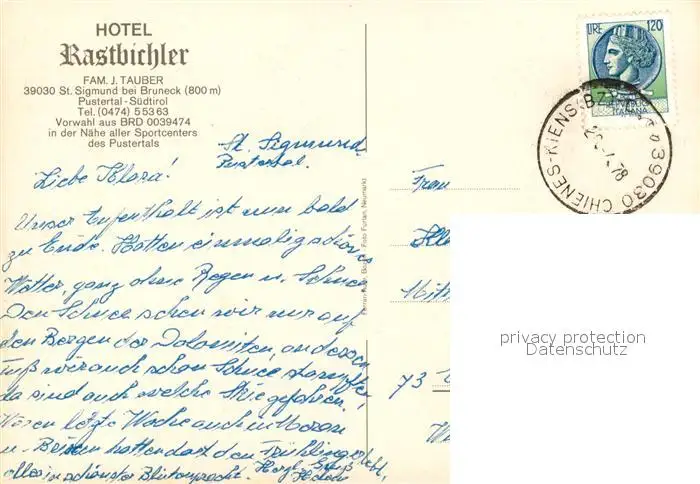 HOTEL
Rastbichler
FAM. J. TAUBER
39030 St. Sigmund bei Bruneck (800 m)
Pustertal-Südtirol
Tel. (0474) 55363
Vorwahl aus BRD 0039474
in der Nähe aller Sportcenters
des Pustertals
LIRE 120
REPUBBLICA
ITALIANA
39030 CHIENES-KIENS
78
St. Sigmund
Pustertal.
Liebe Klara!
Unser Aufenthalt ist nun bald
zu Ende. Hatten einmalig schönes
Wetter, ganz ohne Regen u. Schnee
Den Schnee sehen wir nur auf
den Bergen der Dolomiten, an dessen
Fuß wir auch schon Schnee stampften,
da sind auch welche Skie gefahren!
Waren letzte Woche auch in Meran
u. Brixen hatten dort den Frühling erlebt,
alles in schönster Blütenpracht. Herzl. Gruß
Foto Furlan, Neumarkt
Frau
73
privacy protection
Datenschutz